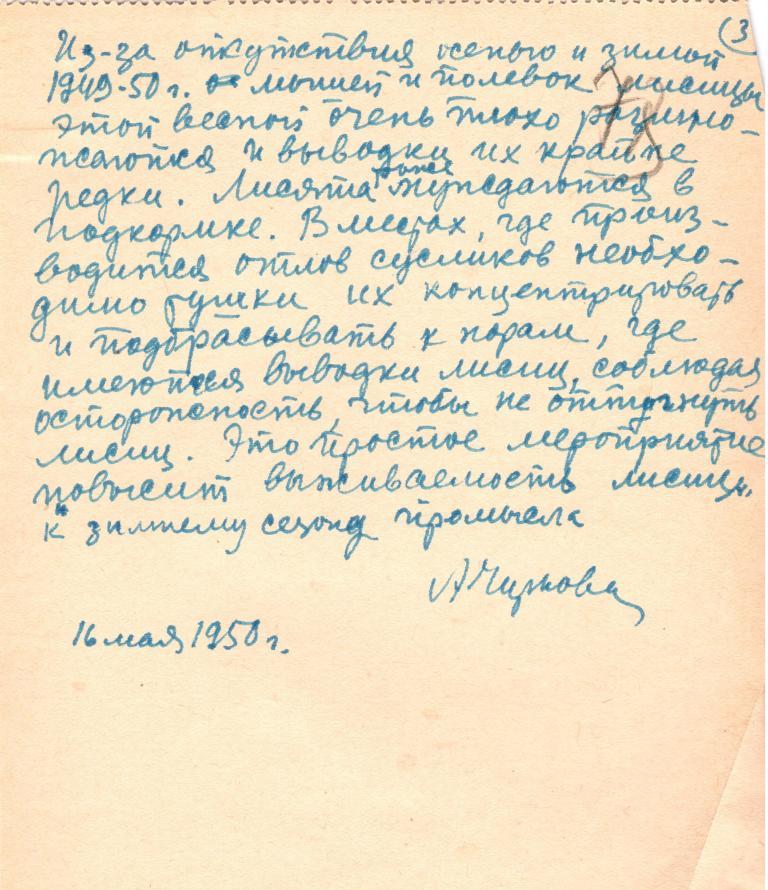 (3
78
Из-за отсутствия осенью и зимой
1949-50 г. мышей и полевок лисицы
этой весной очень плохо размно-
жаются и выводки их крайне
редки. Лисята также нуждаются в
подкормке. В местах, где произ-
водится отлов сусликов необхо-
димо тушки их концентрировать
и подбрасывать к норам, где
имеются выводки лисиц, соблюдая
осторожность, чтобы не отпугнуть
лисиц. Это простое мероприятие
повысит выживаемость лисиц
к зимнему сезону промысла
16 мая 1950 г.